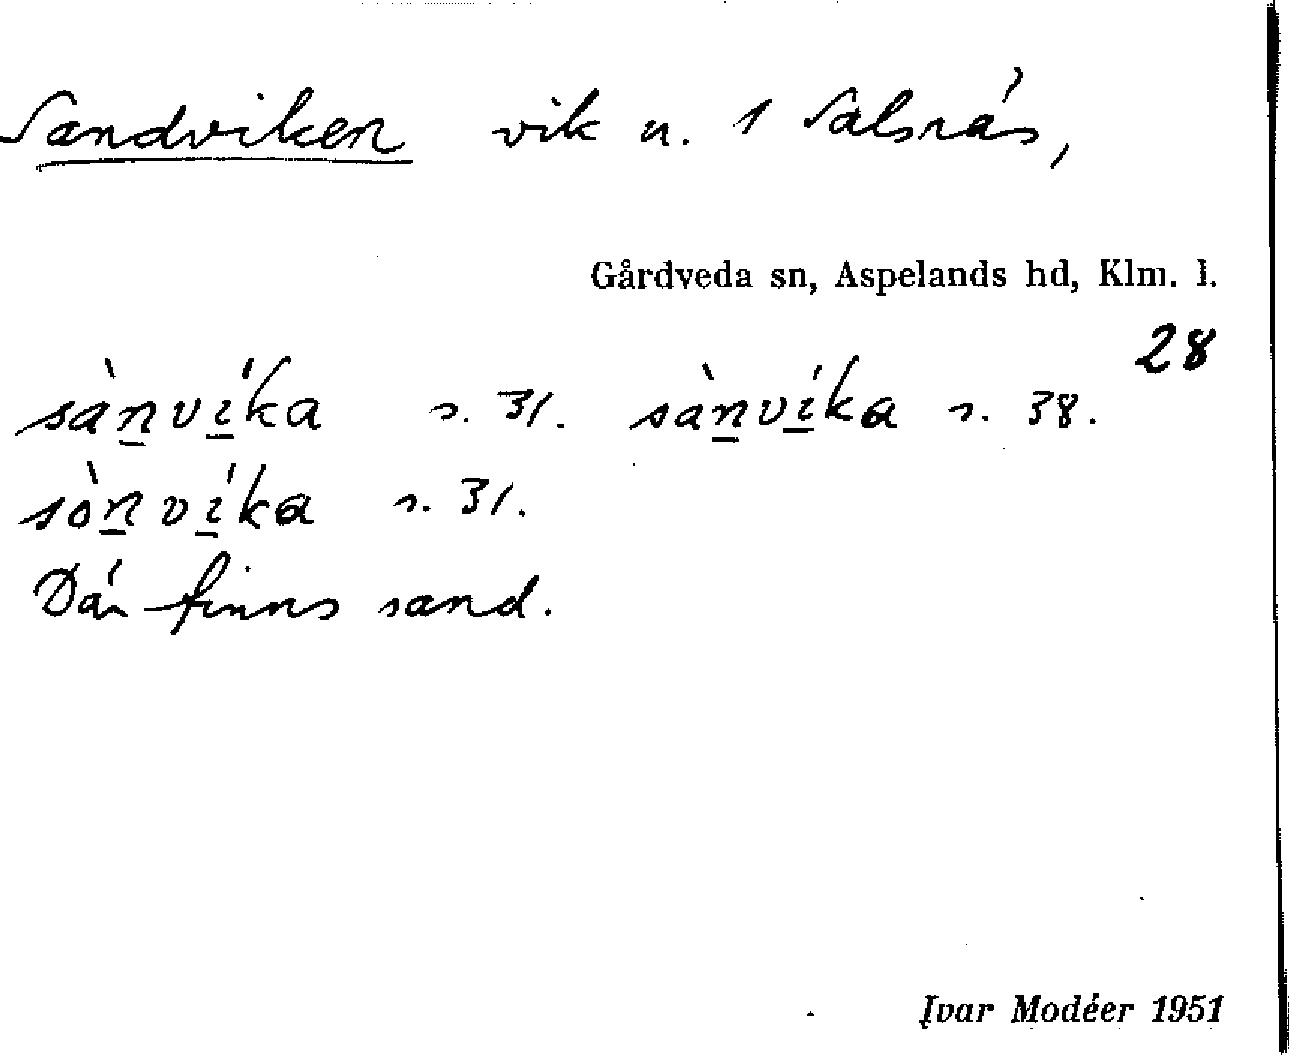 Sandviken vik n. 1 Salsnäs,
Gårdveda sn, Aspelands hd, Klm. l.
28
sàn̲vi̲´ka s. 31. sàn̲vi̲´ka s. 38.
sòn̲vi̲´ka s. 31.
Där finns sand.
Ivar Modéer 1951